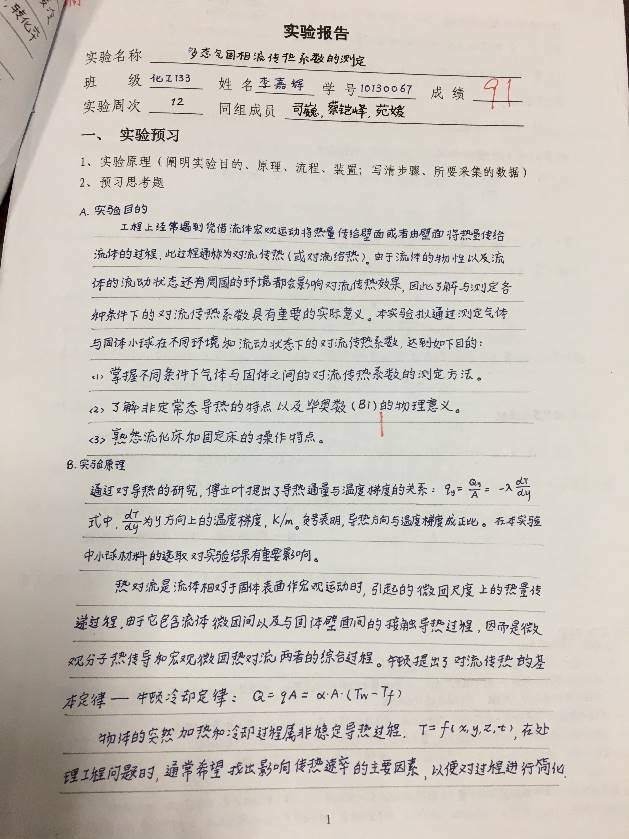 实验报告
实验名称 多态气固相流传热系数的测定
班 级 化工133 姓 名 李嘉辉 学 号 10130067 成 绩 91
实验周次 12 同组成员 司巍, 蔡铠峰, 苑媛
一、 实验预习
1、实验原理（阐明实验目的、原理、流程、装置；写清步骤、所要采集的数据）
2、预习思考题
A. 实验目的
工程上经常遇到凭借流体宏观运动将热量传给壁面或者由壁面将热量传给
流体的过程，此过程通称为对流传热（或对流给热）。由于流体的物性以及流
体的流动状态还有周围的环境都会影响对流传热效果，因此了解与测定各
种条件下的对流传热系数具有重要的实际意义。本实验拟通过测定气体
与固体小球在不同环境和流动状态下的对流传热系数，达到如下目的：
<1> 掌握不同条件下气体与固体之间的对流传热系数的测定方法。
<2> 了解非定常态导热的特点以及毕奥数（Bi）的物理意义。
<3> 熟悉流化床和固定床的操作特点。
B. 实验原理
通过对导热的研究，傅立叶提出了导热通量与温度梯度的关系：qy = Qy/A = -λ dT/dy
式中，dT/dy 为y方向上的温度梯度，K/m。负号表明，导热方向与温度梯度成正比。在本实验
中小球材料的选取对实验结果有重要影响。
热对流是流体相对于固体表面作宏观运动时，引起的微团尺度上的热量传
递过程。由于它包含流体微团间以及与固体壁面间的接触导热过程，因而是微
观分子热传导和宏观微团热对流两者的综合过程。牛顿提出了对流传热的基
本定律 — 牛顿冷却定律：Q = qA = α·A·(Tw - Tf)
物体的突然加热和冷却过程属非稳定导热过程．T = f(x,y,z,t)，在处
理工程问题时，通常希望找出影响传热速率的主要因素，以便对过程进行简化．
1